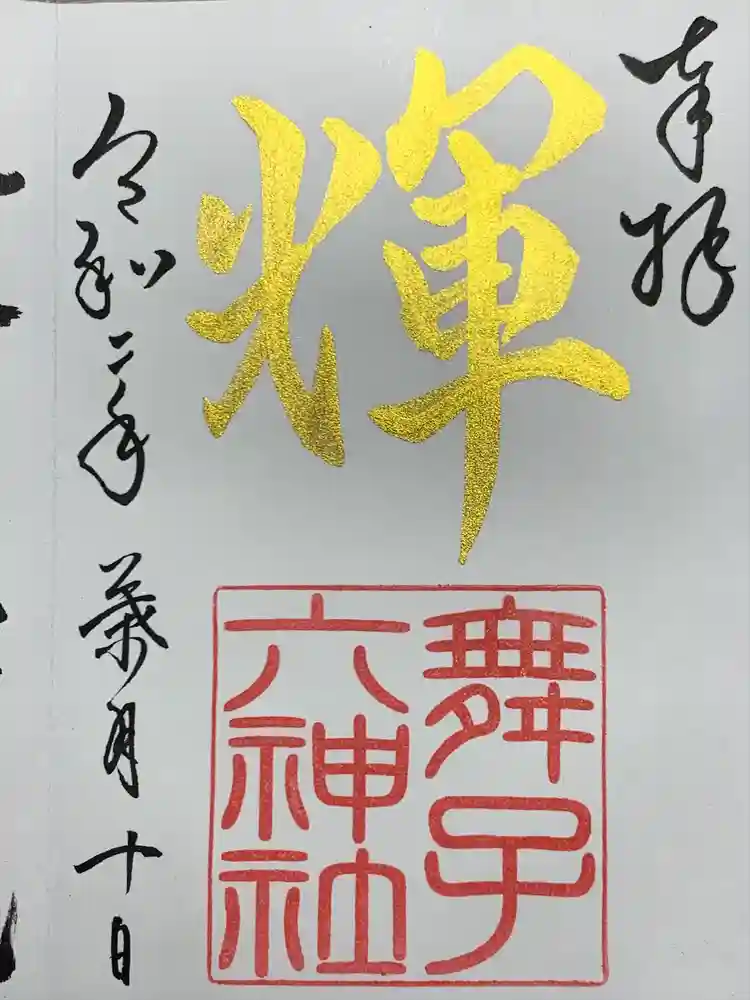 奉拝
輝
舞子
六神社
令和二年 葉月 十日